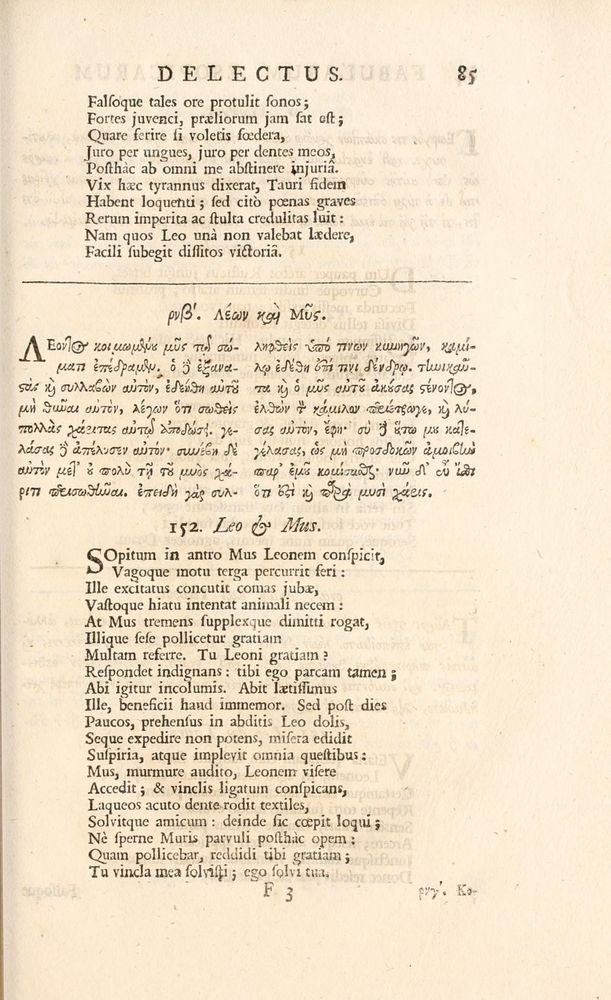 DELECTUS. 85
Falſoque tales ore protulit ſonos;
Fortes juvenci, præliorum jam ſat eſt;
Quare ferire ſi voletis fœdera,
Juro per ungues, juro per dentes meos,
Poſthàc ab omni me abſtinere injuriâ.
Vix hæc tyrannus dixerat, Tauri fidem
Habent loquenti; ſed citò pœnas graves
Rerum imperita ac ſtulta credulitas luit:
Nam quos Leo unà non valebat lædere,
Facili ſubegit diſſitos victoriâ.
ρνβʹ. Λέων καὶ Μῦς.
ΛΕοντος κοιμωμένου μῦς τῷ σώ-
ματι ἐπέδραμεν. ὁ δὲ ἐξανα-
ϛὰς καὶ συλλαβὼν αὐτὸν, ἐδεήθη αὐτοῦ
μὴ αὐτὸν, λέγων ὅτι σωθεὶς
πολλὰς χάριτας αὐτῷ ἀποδώσει. γε-
λάσας δὲ ἀπέλυσεν αὐτόν· συνέβη δὲ
αὐτὸν μετ' οὐ πολὺ τῇ τοῦ μυὸς χά-
ριτι περισωθῆναι. ἐπειδὴ γὰρ συλ-
ληφθεὶς ὑπό τινων κυνηγῶν, καμί-
λῳ ἐδέθη ἐπί τινι δένδρῳ. τηνικαῦ-
τα καὶ ὁ μῦς αὐτοῦ ἀκούσας ϛένοντος,
ἐλθὼν τὸν κάμιλον περιέτρωγε, καὶ λύ-
σας αὐτὸν, ἔφη· σὺ δὲ οὕτω μου κατε-
γέλασας, ὡς μὴ προσδοκῶν ἀμοιβὴν
παρ' ἐμοῦ κομίσασθαι· νῦν δ' εὖ ἴσθι
ὅτι ἐϛὶ καὶ παρὰ μυσὶ χάρις.
152. Leo & Mus.
SOpitum in antro Mus Leonem conſpicit,
Vagoque motu terga percurrit feri:
Ille excitatus concutit comas jubæ,
Vaſtoque hiatu intentat animali necem:
At Mus tremens ſupplexque dimitti rogat,
Illique ſeſe pollicetur gratiam
Multam referre. Tu Leoni gratiam?
Reſpondet indignans: tibi ego parcam tamen;
Abi igitur incolumis. Abit lætiſſimus
Ille, beneficii haud immemor. Sed poſt dies
Paucos, prehenſus in abditis Leo dolis,
Seque expedire non potens, miſera edidit
Suſpiria, atque implevit omnia queſtibus:
Mus, murmure audito, Leonem viſere
Accedit; & vinclis ligatum conſpicans,
Laqueos acuto dente rodit textiles,
Solvitque amicum: deinde ſic cœpit loqui;
Nè ſperne Muris parvuli poſthàc opem:
Quam pollicebar, reddidi tibi gratiam;
Tu vincla mea ſolviſti; ego ſolvi tua.
F 3 ρνγʹ. Κο-